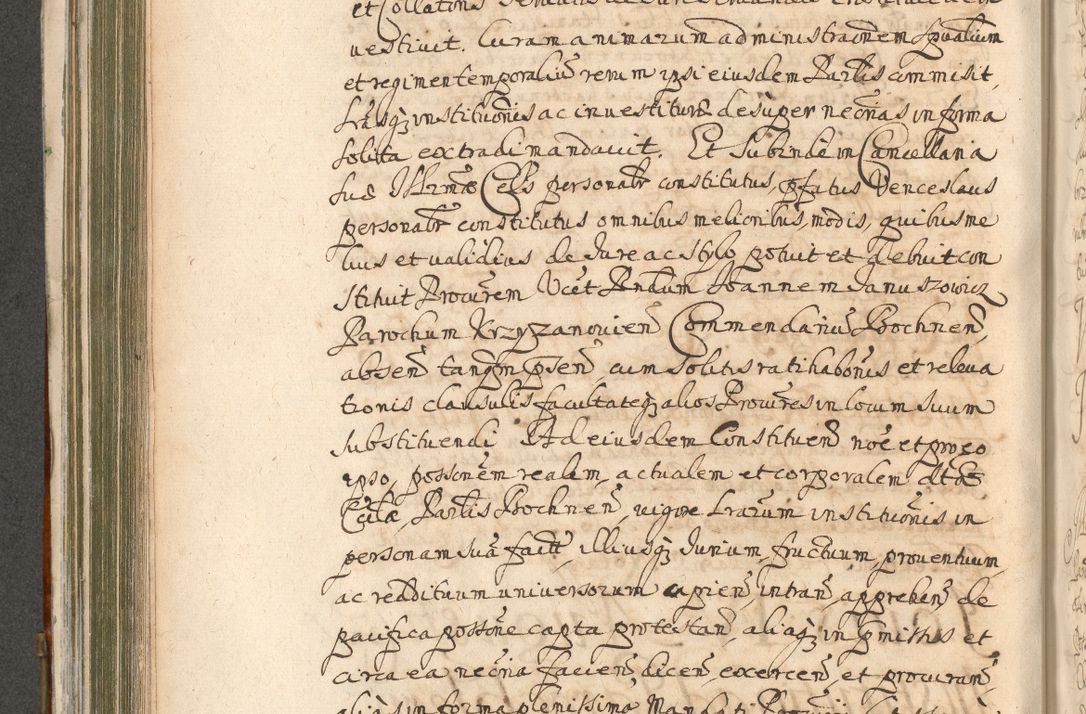 et Collationis
vestivit. Curam animarum administraõnem spũalium
et regimen temporaliũ rerum ipsi eiusdem Parlis commisit,
Lrãsq; institutiõnis ac investiturę desùper necriãs in forma
solita extradi mandavit. Et Subindè in Cancellaria
suę Illrmæ Cels personalr constitutus, pfatus Venceslaus
personalr constitutus omnibus melioribus, modis, quibus me
lius et validius de Jure ac stylo potuit et debuit con
stituit Procurẽm Vcet Rndum Joannem Januszowicz
Parochum Krzyzanovien̄ Commendariũ Bochnen̄,
absen̄ tanq̃m p̃sen̄, cum solitis ratihaboñis et releva
tionis clausulis, facultateq; alios Procurẽs in locum suum
substituendi Ad eiusdem Constituen̄ noẽ et pro eo
ipso, possoñem realem, actualem et corporalem dctæ
Ecclæ, Parlis Bochnen̄, vigore Lrarũm institutioñis in
personam suã factæ, illiusq; Jurium, fructuum, proventuum,
ac reddituum universorum capien̄, intran̄, apprehen̄ de
pacifica possoñe capta protestan̄, aliaq; in p̃missis et
circa ea necriã facien̄, dicen̄, exercen̄, et procuran̄,
aliàs in forma plenissima Mandati